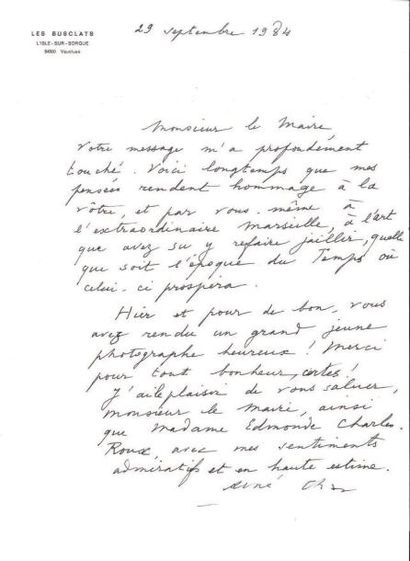 LES BUSCLATS
L'ISLE-SUR-SORGUE
84800 Vaucluse
29 septembre 1984
Monsieur le Maire,
Votre message m'a profondément
touché. Voici longtemps que mes
pensées rendent hommage à la
vôtre, et par vous-même à
l'extraordinaire Marseille, à l'art
que avez su y refaire jaillir, quelle
que soit l'époque du Temps où
celui-ci prospéra.
Hier et pour de bon, vous
avez rendu un grand jeune
photographe heureux ! Merci
pour tout bonheur, certes !
J'ai le plaisir de vous saluer,
monsieur le Maire, ainsi
que Madame Edmonde Charles-
Roux, avec mes sentiments
admiratifs et en haute estime.
René Char